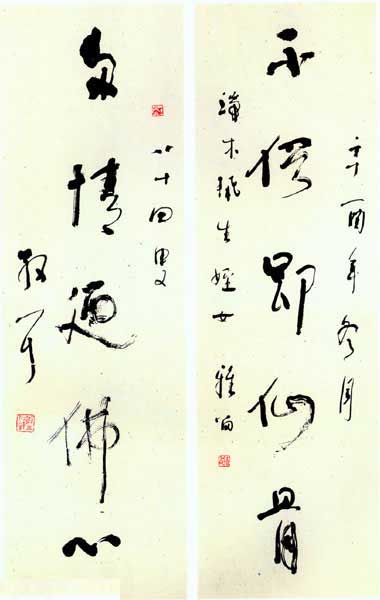 辛酉年冬月
不俗即仙骨
木生姪女雅
多情迺佛心
八十四叟
散耳